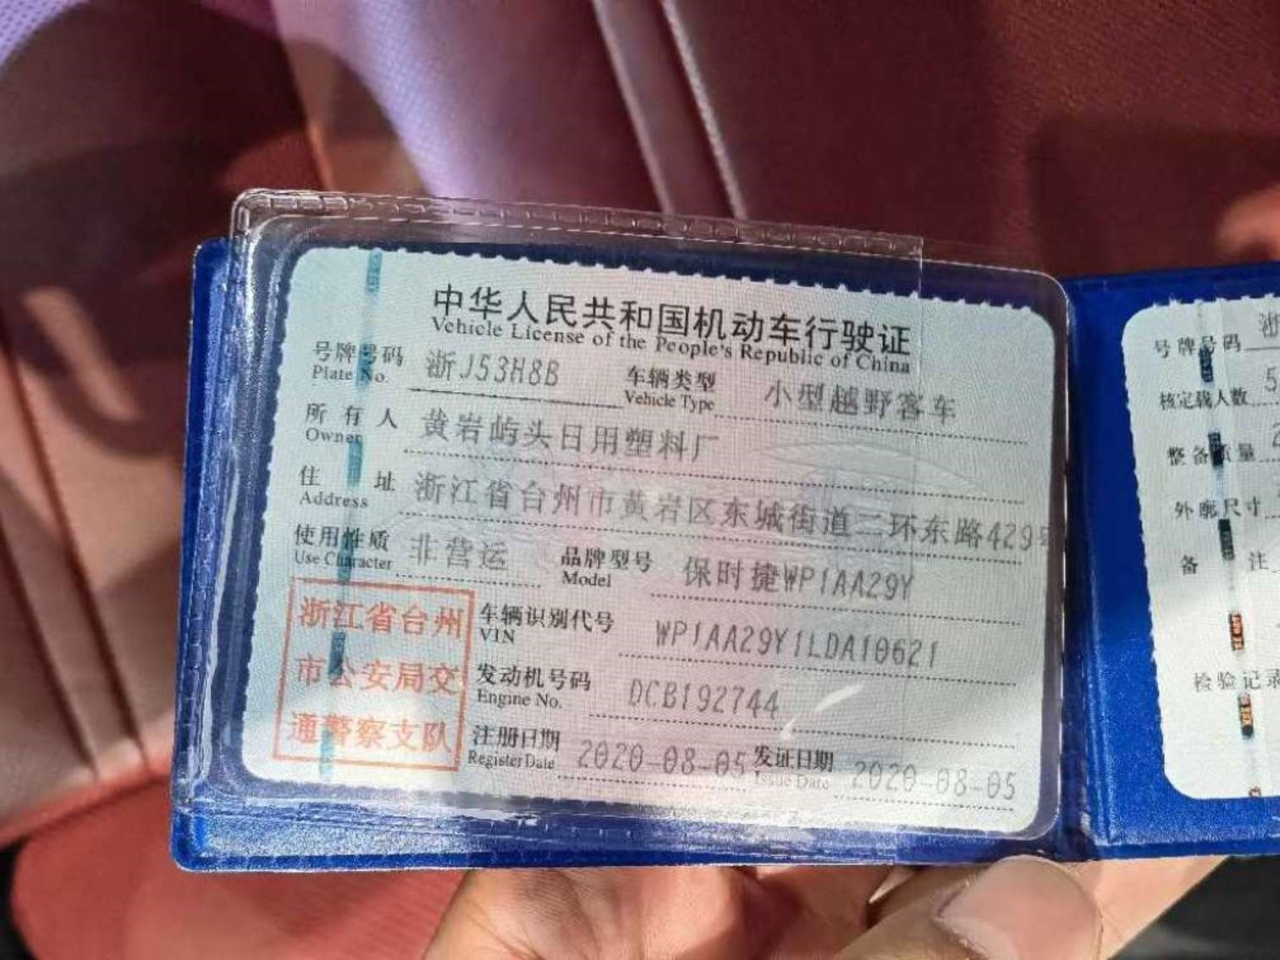 中华人民共和国机动车行驶证
Vehicle License of the People's Republic of China
号牌号码 浙J53H8B 车辆类型 小型越野客车
Plate No. Vehicle Type
所有人 黄岩屿头日用塑料厂
Owner
住址 浙江省台州市黄岩区东城街道二环东路429号
Address
使用性质 非营运 品牌型号 保时捷WP1AA29Y
Use Character Model
浙江省台州
市公安局交
通警察支队
车辆识别代号 WP1AA29Y1LDA10621
VIN
发动机号码 DCB192744
Engine No.
注册日期 2020-08-05 发证日期 2020-08-05
Register Date Issue Date
号牌号码 浙
核定载人数 5
整备质量 2
外廓尺寸
备注
检验记录